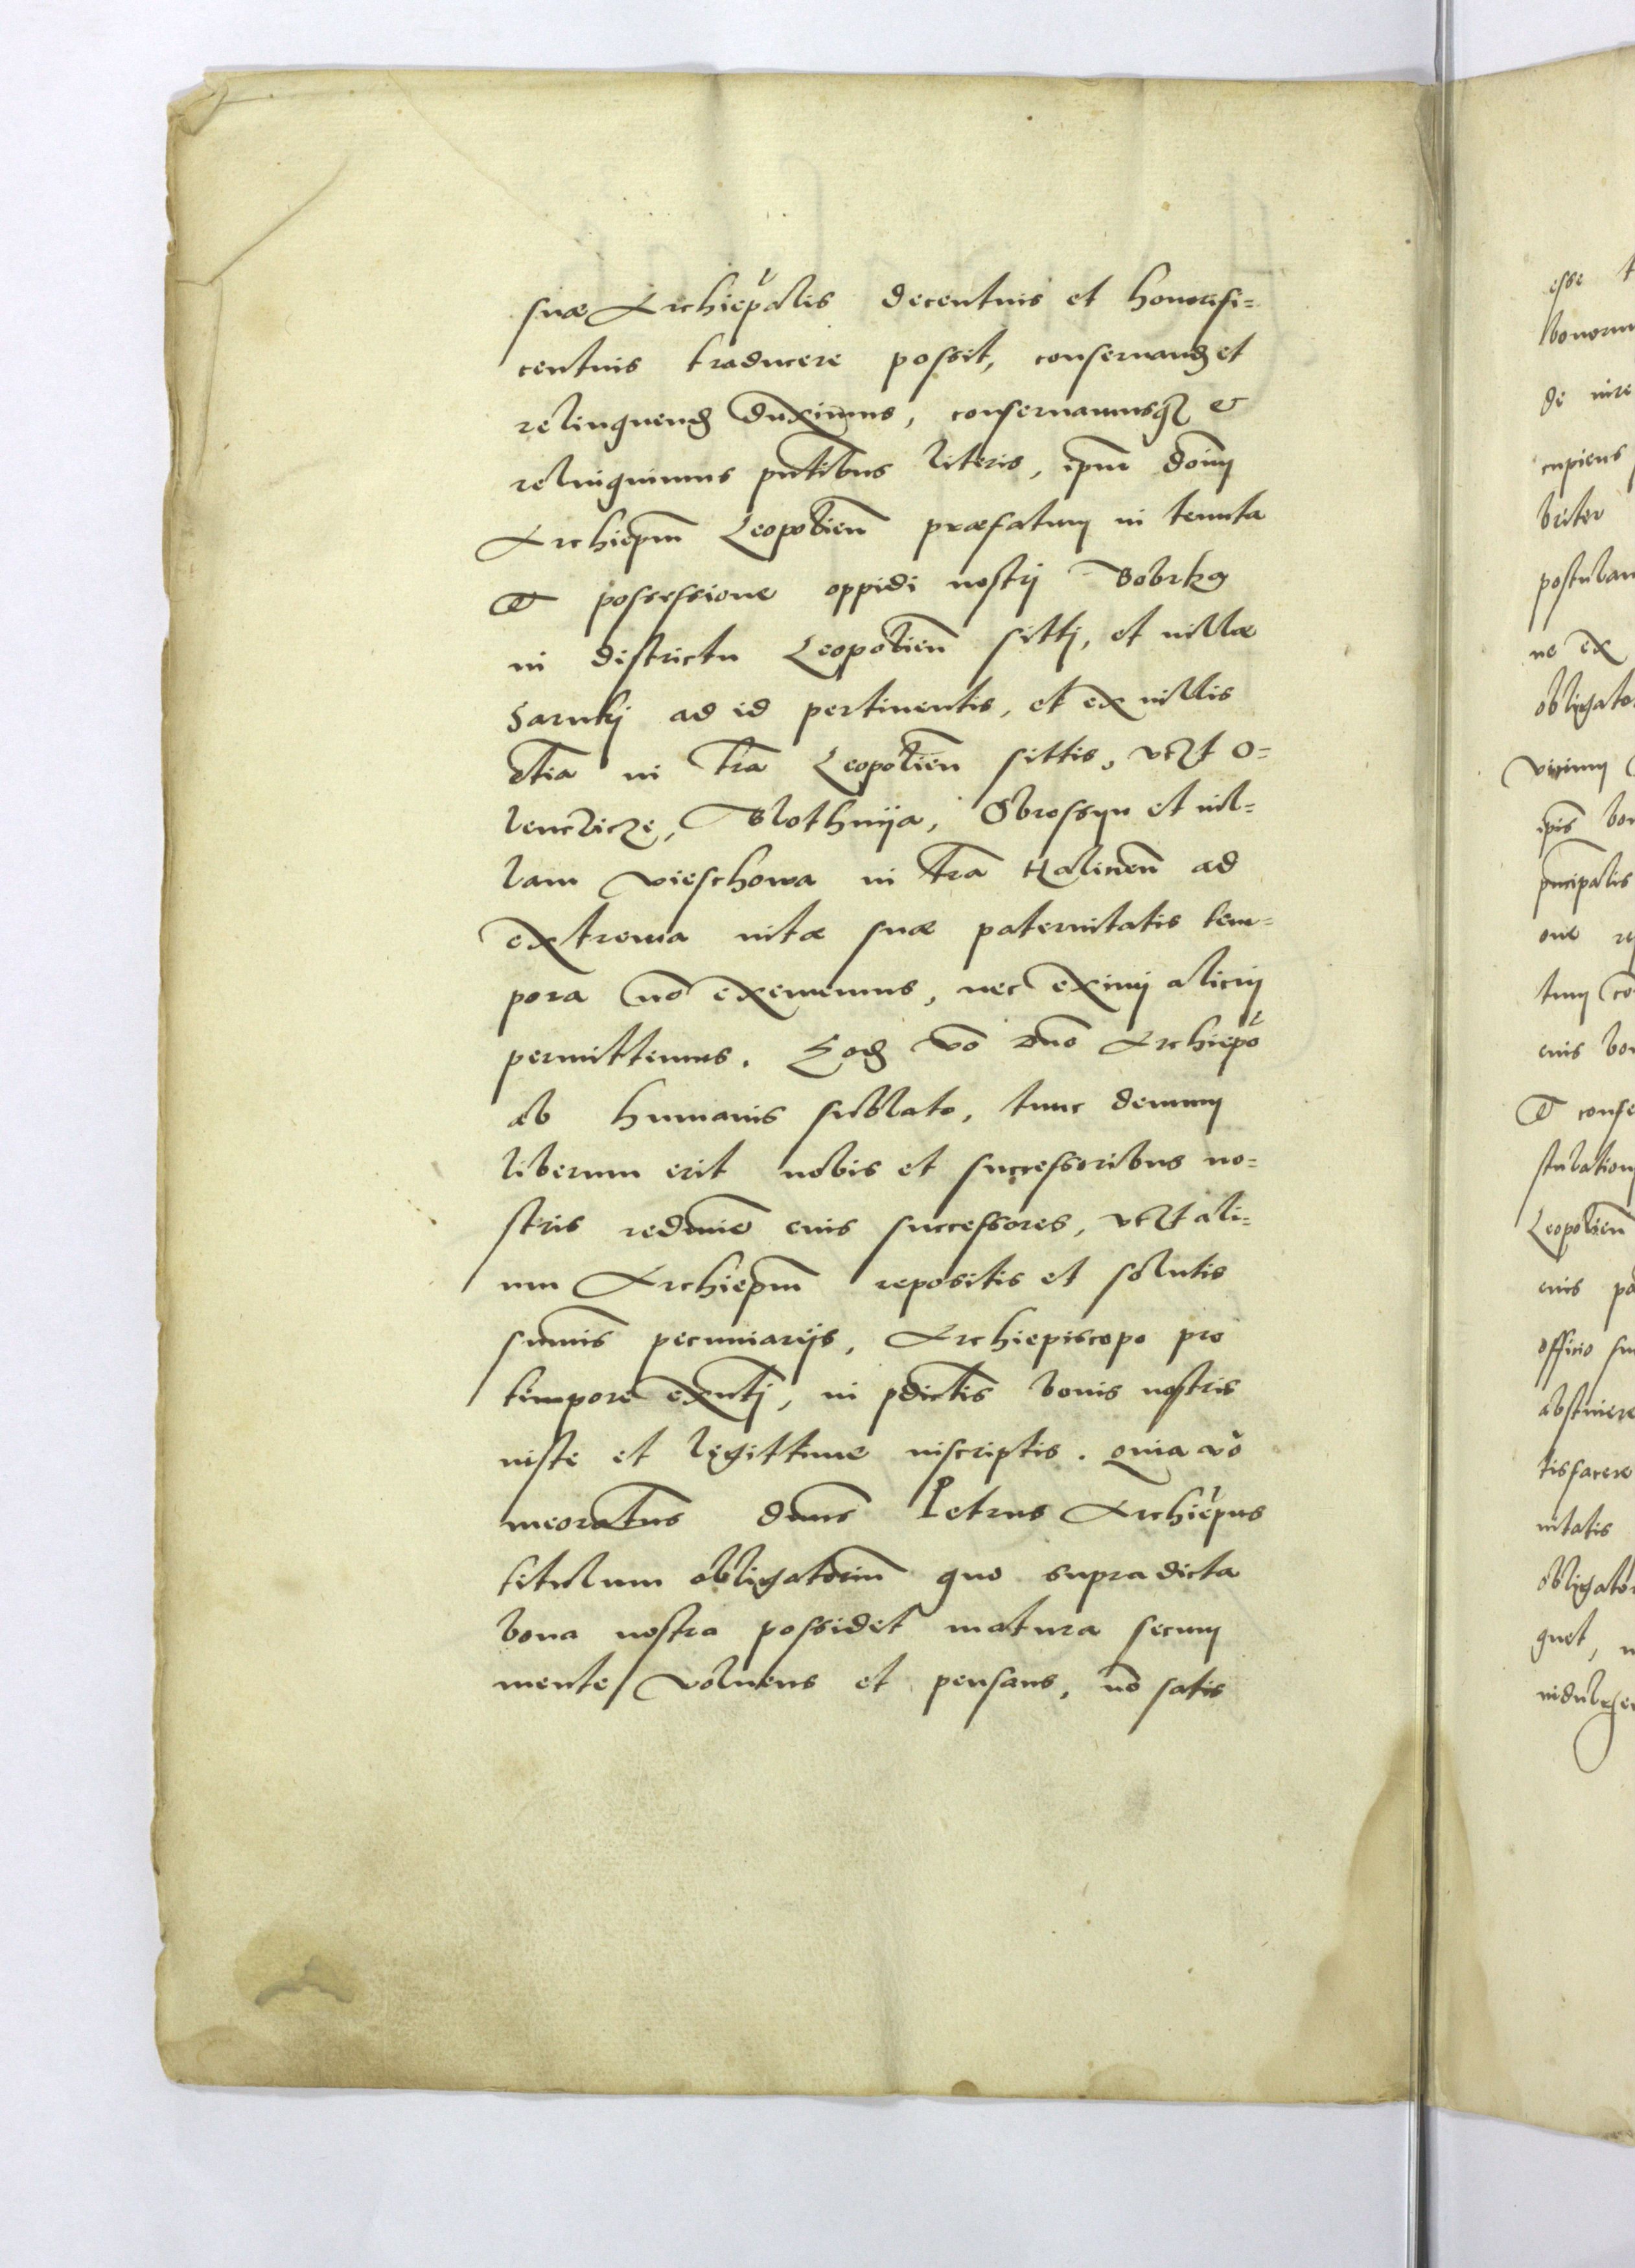 suæ Archiep̃alis decentius et honorifi=
centius traducere possit, conseruand̃ et
relinquend̃ duximus, conseruamusq̃ &
relinquimus pñtibus literis, ip̃m dom̃
Archiep̃m Leopolien̄ præfatum in tenuta
Et possessione oppidi nostrj Bobrka
in districtu Leopolien̄ sittj, et villæ
Sarnkj ad id pertinentis, et ex villis
etiã in tr̃a Leopolien̄ sittis, vtzt O=
lenczicze, Blothnija, Obrossyn et vil=
lam Vieschowa in tr̃a Halicien̄ ad
extrema vitæ suæ paternitatis tem=
pora nõ eximemus, nec eximj alicuj
permittemus. Eod̃ võ dño Archiep̃o
ab humanis sublato, tunc demum
liberum erit nobis et successoribus no=
stris redimĩe eius successores, vtzt ali=
um Archiep̃m repositis et solutis
sum̃is pecuniarijs, Archiepiscopo pro
tempore exñtj, in p̃dictis bonis nostris
iuste et legittime inscriptis. Quia võ
memoratus dñus Petrus Archiep̃us
titulum obligatoriũ quo supradicta
bona nostra possidet matura secum
mente voluens et pensans, nõ satis
esse
bonorum
de iure
cupiens
briter
postulan
ne ex
obligato
ip̃is bon
principalis
one
tum
eius bon
Et conse
stulation
Leopolien̄
eius pa
officio su
abstinere
tisfacere
nitatis
obligator
quet,
indulge